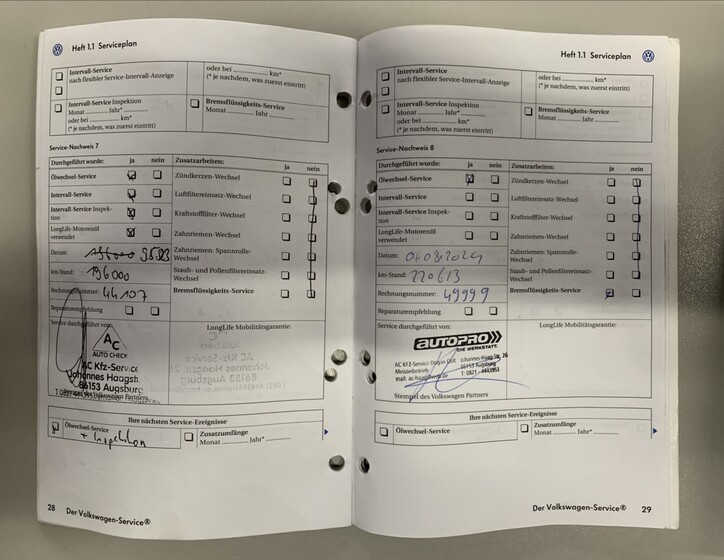 Heft 1.1 Serviceplan
Intervall-Service
nach flexibler Service-Intervall-Anzeige
oder bei km*
(* je nachdem, was zuerst eintritt)
Intervall-Service Inspektion
Monat Jahr*
oder bei km*
(* je nachdem, was zuerst eintritt)
Bremsflüssigkeits-Service
Monat Jahr
Service-Nachweis 7
Durchgeführt wurde: ja nein
Zusatzarbeiten: ja nein
Ölwechsel-Service
Zündkerzen-Wechsel
Intervall-Service
Luftfiltereinsatz-Wechsel
Intervall-Service Inspek-
tion
Kraftstofffilter-Wechsel
LongLife-Motorenöl
verwendet
Zahnriemen-Wechsel
Datum:
Zahnriemen: Spannrolle-
Wechsel
km-Stand: 196000
Staub- und Pollenfiltereinsatz-
Wechsel
Rechnungsnummer: 44107
Bremsflüssigkeits-Service
Reparaturempfehlung
Service durchgeführt von:
LongLife Mobilitätsgarantie:
AC
AUTO CHECK
AC Kfz-Service
Johannes Haagstr.
86153 Augsburg
Stempel des Volkswagen Partners
Ihre nächsten Service-Ereignisse
Ölwechsel-Service
+ Inspektion
Zusatzumfänge
Monat Jahr*
28 Der Volkswagen-Service®
Heft 1.1 Serviceplan
Intervall-Service
nach flexibler Service-Intervall-Anzeige
oder bei km*
(* je nachdem, was zuerst eintritt)
Intervall-Service Inspektion
Monat Jahr*
oder bei km*
(* je nachdem, was zuerst eintritt)
Bremsflüssigkeits-Service
Monat Jahr
Service-Nachweis 8
Durchgeführt wurde: ja nein
Zusatzarbeiten: ja nein
Ölwechsel-Service
Zündkerzen-Wechsel
Intervall-Service
Luftfiltereinsatz-Wechsel
Intervall-Service Inspek-
tion
Kraftstofffilter-Wechsel
LongLife-Motorenöl
verwendet
Zahnriemen-Wechsel
Datum: 01.08.2024
Zahnriemen: Spannrolle-
Wechsel
km-Stand: 220613
Staub- und Pollenfiltereinsatz-
Wechsel
Rechnungsnummer: 49999
Bremsflüssigkeits-Service
Reparaturempfehlung
Service durchgeführt von:
LongLife Mobilitätsgarantie:
AUTOPRO
DIE WERKSTATT.
AC KFZ-Service
Johannes-Haag-Str. 26
Meisterbetrieb
86153 Augsburg
Stempel des Volkswagen Partners
Ihre nächsten Service-Ereignisse
Ölwechsel-Service
Zusatzumfänge
Monat Jahr*
Der Volkswagen-Service® 29